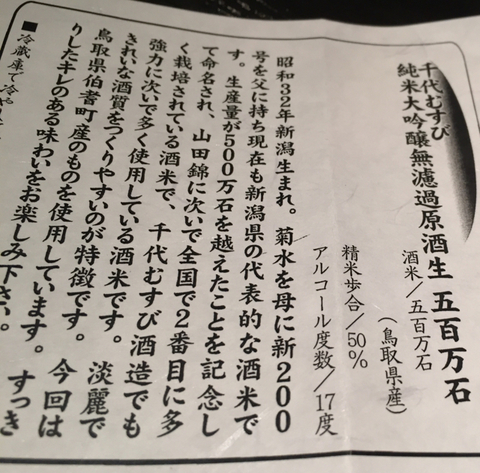 千代むすび
純米大吟醸無濾過原酒生 五百万石
酒米/五百万石
(鳥取県産)
精米歩合/50%
アルコール度数/17度
昭和32年新潟生まれ。菊水を母に新200
号を父に持ち現在も新潟県の代表的な酒米で
す。生産量が500万石を越えたことを記念し
て命名され、山田錦に次いで全国で2番目に多
く栽培されている酒米で、千代むすび酒造でも
強力に次いで多く使用している酒米です。淡麗で
きれいな酒質をつくりやすいのが特徴です。今回は
鳥取県伯耆町産のものを使用しています。すっき
りしたキレのある味わいをお楽しみ下さい。
■冷蔵庫で冷や